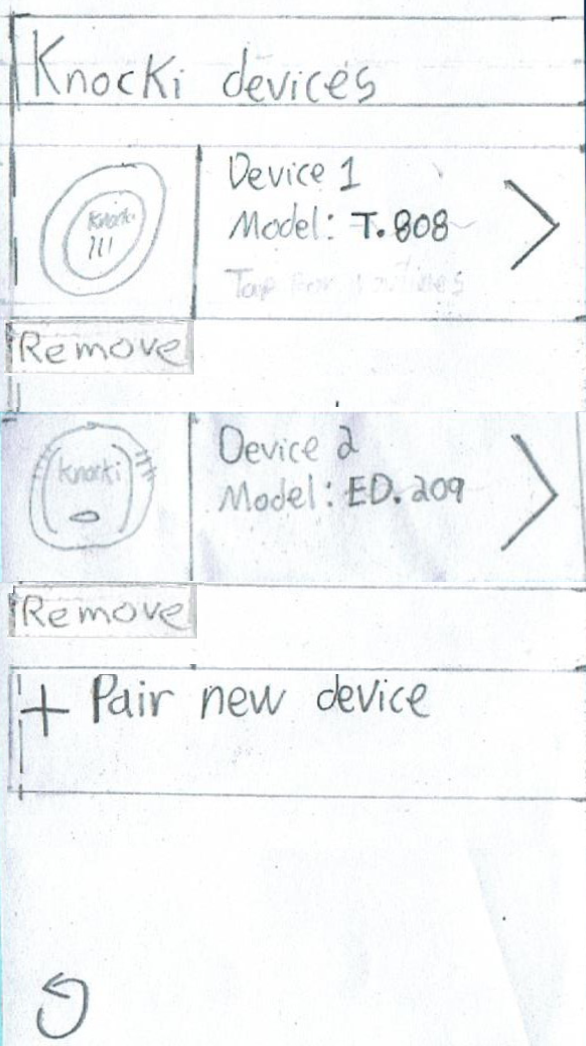 Knocki devices
Knocki
Device 1
Model: T.808
Tap for routines
Remove
Knocki
Device 2
Model: ED.209
Remove
+ Pair new device